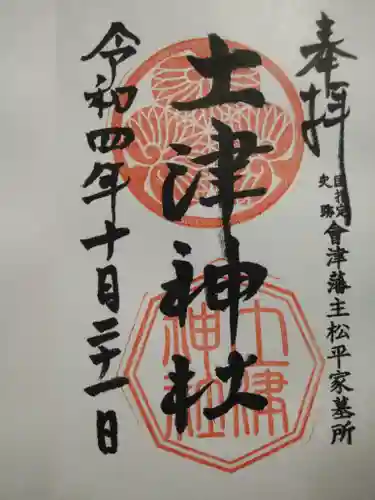 奉拝
国指定史跡
會津藩主松平家墓所
土津神社
土津神社
令和四年十月二十一日